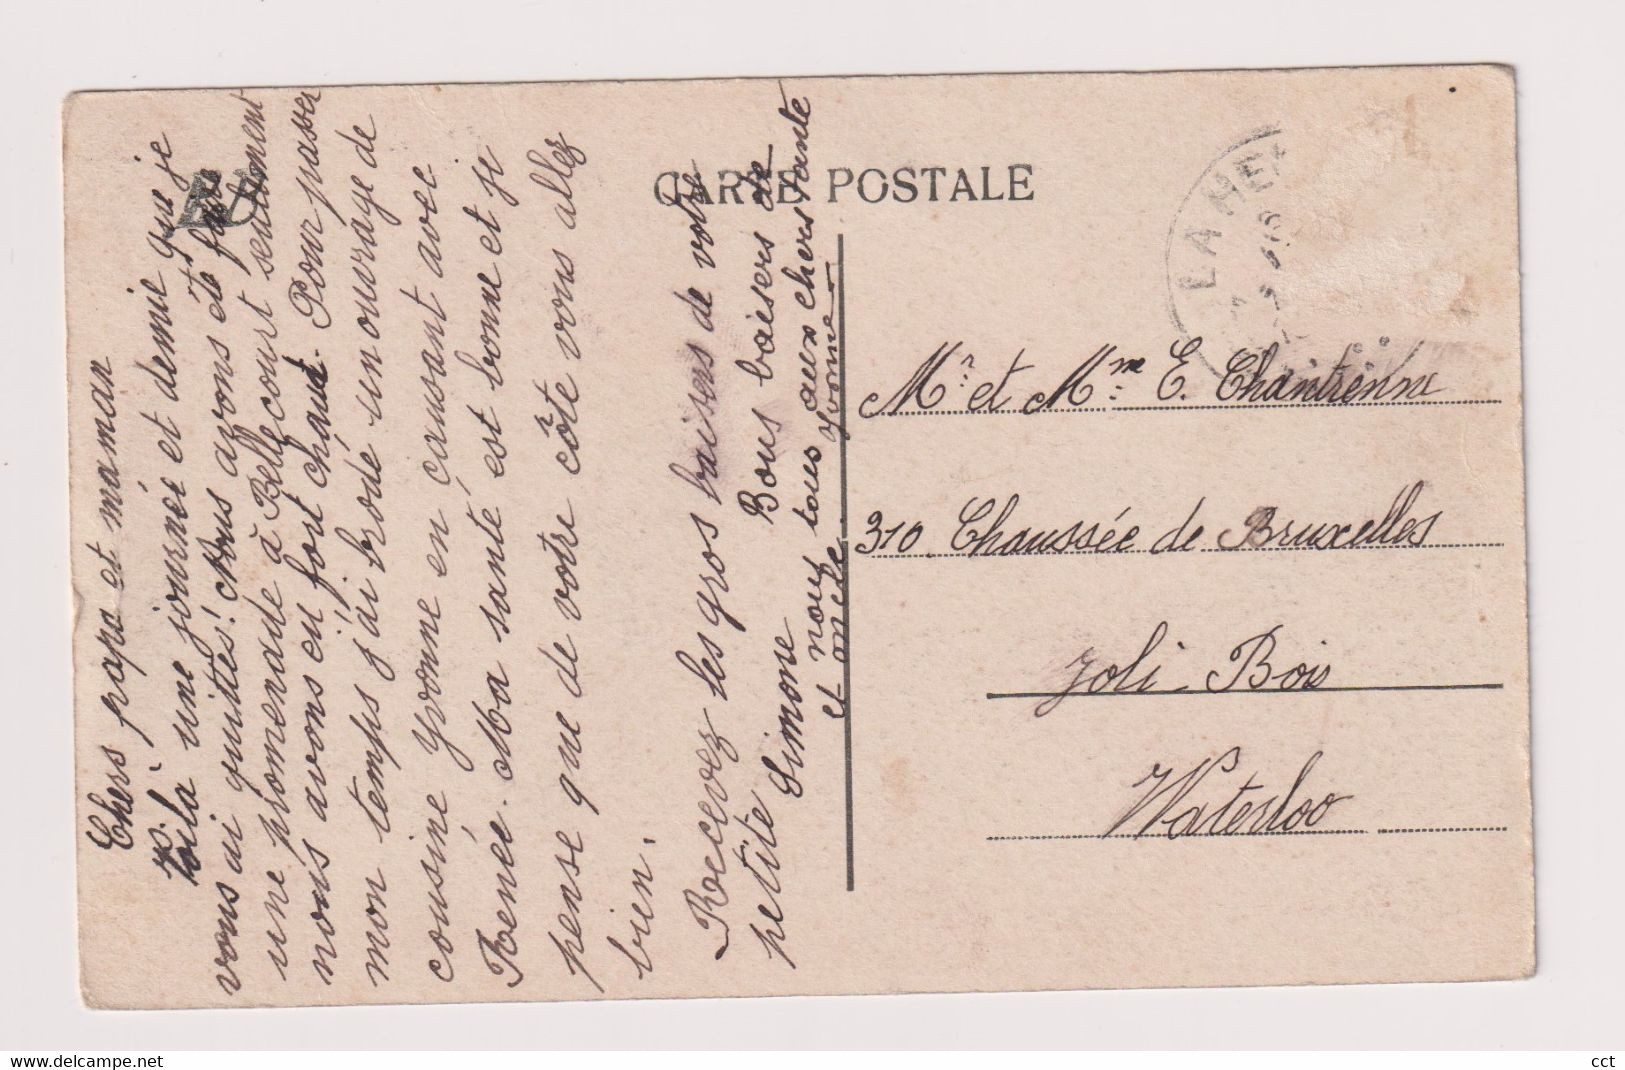 CARTE POSTALE
LA HE
Chers papa et maman
Voila une journée et demie que je
vous ai quittés! Nous avons été faire
une promenade à Bellecourt seulement
nous avons eu fort chaud. Pour passer
mon temps j'ai brodé un ouvrage de
cousine Yvonne en causant avec
Renée. Ma santé est bonne et je
pense que de votre côté vous allez
bien.
Recevez les gros baisers de votre
petite Simone
Bons baisers de
nous tous aux chers tante
et oncle Yvonne
Mr. et Mme. E. Chantrenne
310 Chaussée de Bruxelles
Joli-Bois
Waterloo
delcampe.net
cct